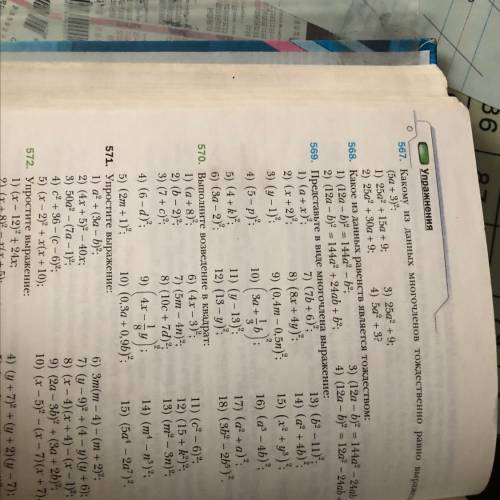 Упражнения
567. Какому из данных многочленов тождественно равно
(5a + 3)²:
1) 25a² + 15a + 9; 3) 25a² + 9;
2) 25a² + 30a + 9; 4) 5a² + 3?
568. Какое из данных равенств является тождеством:
1) (12a − b)² = 144a² − b²; 3) (12a − b)² = 144a² − 24ab
2) (12a − b)² = 144a² + 24ab + b²; 4) (12a − b)² = 12a² − 24ab
569. Представьте в виде многочлена выражение:
1) (a + x)²; 7) (7b + 6)²; 13) (b² − 11)²;
2) (x + 2)²; 8) (8x + 4y)²; 14) (a² + 4b)²;
3) (y − 1)²; 9) (0,4m − 0,5n)²; 15) (x² + y³)²;
4) (5 − p)²; 10) (3a + 1/3 b)²; 16) (a² − 4b)²;
5) (4 + k)²; 11) (y − 13)²; 17) (a² + a)²;
6) (3a − 2)²; 12) (13 − y)²; 18) (3b² − 2b⁵)².
570. Выполните возведение в квадрат:
1) (a + 8)²; 6) (4x − 3)²; 11) (c² − 6)²;
2) (b − 2)²; 7) (5m − 4n)²; 12) (15 + k²)²;
3) (7 + c)²; 8) (10c + 7d)²; 13) (m² − 3n)²;
4) (6 − d)²; 9) (4x − 1/8 y)²; 14) (m⁴ − n³)²;
5) (2m + 1)²; 10) (0,3a + 0,9b)²; 15) (5a⁴ − 2a⁷)².
571. Упростите выражение:
1) a² + (3a − b)²; 6) 3m(m − 4) − (m + 2)²;
2) (4x + 5)² − 40x; 7) (y − 9)² + (4 − y)(y + 6);
3) 50a² − (7a − 1)²; 8) (x − 4)(x + 4) − (x − 1)²;
4) c² + 36 − (c − 6)²; 9) (2a − 3b)² + (3a + 2b)²;
5) (x − 2)² + x(x + 10); 10) (x − 5)² − (x − 7)(x + 7).
572. Упростите выражение:
1) (x − 12)² + 24x; 4) (y − 7)² + (y + 2)(y − 7);
2) (x + 8)² − x(x + 5);
36